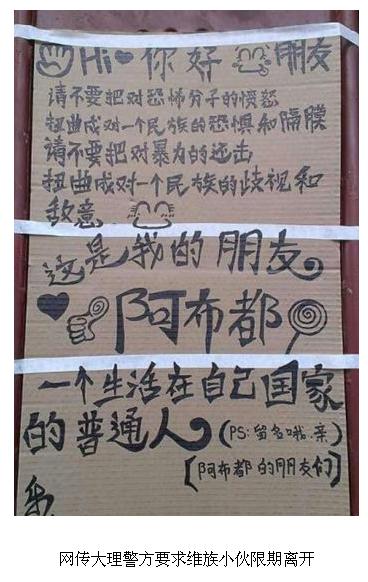 Hi 你好 朋友
请不要把对恐怖分子的愤怒
扭曲成对一个民族的恐惧和隔膜
请不要把对暴力的还击
扭曲成对一个民族的歧视和
敌意
这是我的朋友
阿布都
一个生活在自己国家
的普通人 (PS:留名哦.亲)
[阿布都的朋友们]
网传大理警方要求维族小伙限期离开